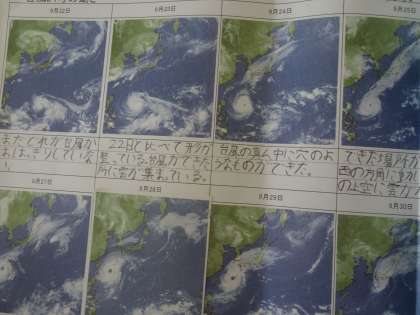 9月22日
9月23日
9月24日
9月25日
まだどれが台風か
おはっきりしていな
い
22日と比べて形が
整っている。台風ができた
所に雲が集まっている。
台風の真ん中に穴のよ
うなものができた。
できた場所から
西の方角に動か
の上空に雲が
9月27日
9月28日
9月29日
9月30日